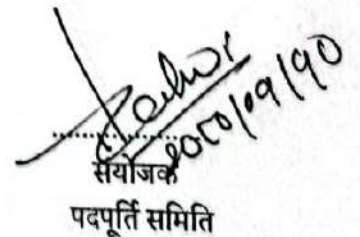 २०८०/०१/१०
संयोजक
पदपूर्ति समिति